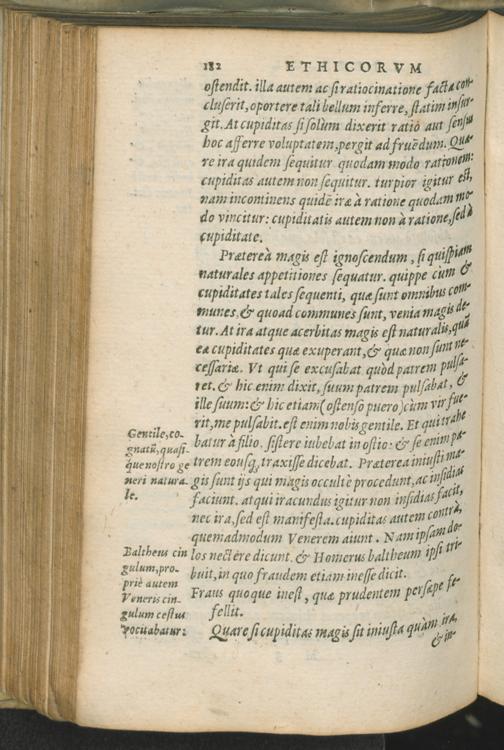 182 ETHICORVM
ostendit. illa autem ac si ratiocinatione facta con-
cluserit, oportere tali bellum inferre, statim insur-
git. At cupiditas si solùm dixerit ratio aut sensus
hoc afferre voluptatem, pergit ad fruēdum. Qua-
re ira quidem sequitur quodam modo rationem:
cupiditas autem non sequitur. turpior igitur est,
nam incontinens quidē iræ à ratione quodam mo-
do vincitur: cupiditatis autem non à ratione, sed à
cupiditate.
Prætereà magis est ignoscendum, si quispiam
naturales appetitiones sequatur. quippe cùm &
cupiditates tales sequenti, quæ sunt omnibus com-
munes, & quoad communes sunt, venia magis de-
tur. At ira atque acerbitas magis est naturalis, quā
eæ cupiditates quæ exuperant, & quæ non sunt ne-
cessariæ. Vt qui se excusabat quòd patrem pulsa-
ret. & hic enim dixit, suum patrem pulsabat, &
ille suum: & hic etiam (ostenso puero) cùm vir fue-
rit, me pulsabit. est enim nobis gentile. Et qui trahe
batur à filio, sistere iubebat in ostio: & se enim pa-
trem eousq; traxisse dicebat. Præterea iniusti ma-
gis sunt ijs qui magis occultè procedunt, ac insidias
faciunt. at qui iracundus igitur non insidias facit,
nec ira, sed est manifesta. cupiditas autem contrà,
quemadmodum Venerem aiunt. Nam ipsam do-
los nectere dicunt. & Homerus baltheum ipsi tri-
buit, in quo fraudem etiam inesse dicit.
Fraus quoque inest, quæ prudentem persæpe fe-
fellit.
Quare si cupiditas magis sit iniusta quàm ira,
& in-
Gentile, co-
gnatū, quasi-
que nostro ge
neri natura-
le.
Baltheus cin
gulum, pro-
priè autem
Veneris cin-
gulum cestus
vocitabatur: